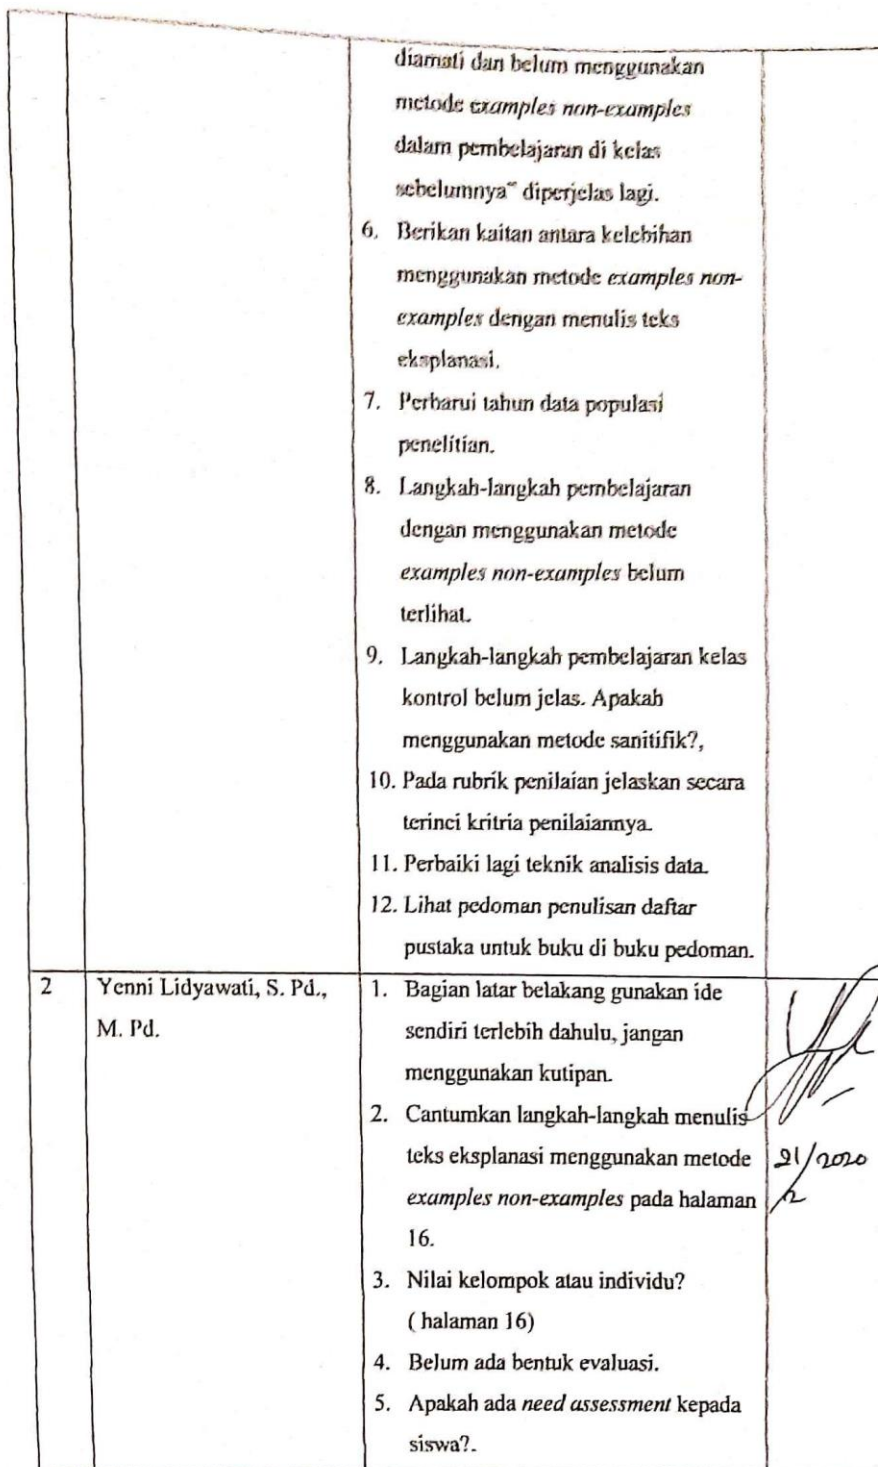 diamati dan belum menggunakan
metode examples non-examples
dalam pembelajaran di kelas
sebelumnya" diperjelas lagi.
6. Berikan kaitan antara kelebihan
menggunakan metode examples non-
examples dengan menulis teks
eksplanasi.
7. Perbarui tahun data populasi
penelitian.
8. Langkah-langkah pembelajaran
dengan menggunakan metode
examples non-examples belum
terlihat.
9. Langkah-langkah pembelajaran kelas
kontrol belum jelas. Apakah
menggunakan metode sanitifik?,
10. Pada rubrik penilaian jelaskan secara
terinci kritria penilaiannya.
11. Perbaiki lagi teknik analisis data.
12. Lihat pedoman penulisan daftar
pustaka untuk buku di buku pedoman.
2
Yenni Lidyawati, S. Pd.,
M. Pd.
1. Bagian latar belakang gunakan ide
sendiri terlebih dahulu, jangan
menggunakan kutipan.
2. Cantumkan langkah-langkah menulis
teks eksplanasi menggunakan metode
examples non-examples pada halaman
16.
3. Nilai kelompok atau individu?
( halaman 16)
4. Belum ada bentuk evaluasi.
5. Apakah ada need assessment kepada
siswa?.
21/2020
2